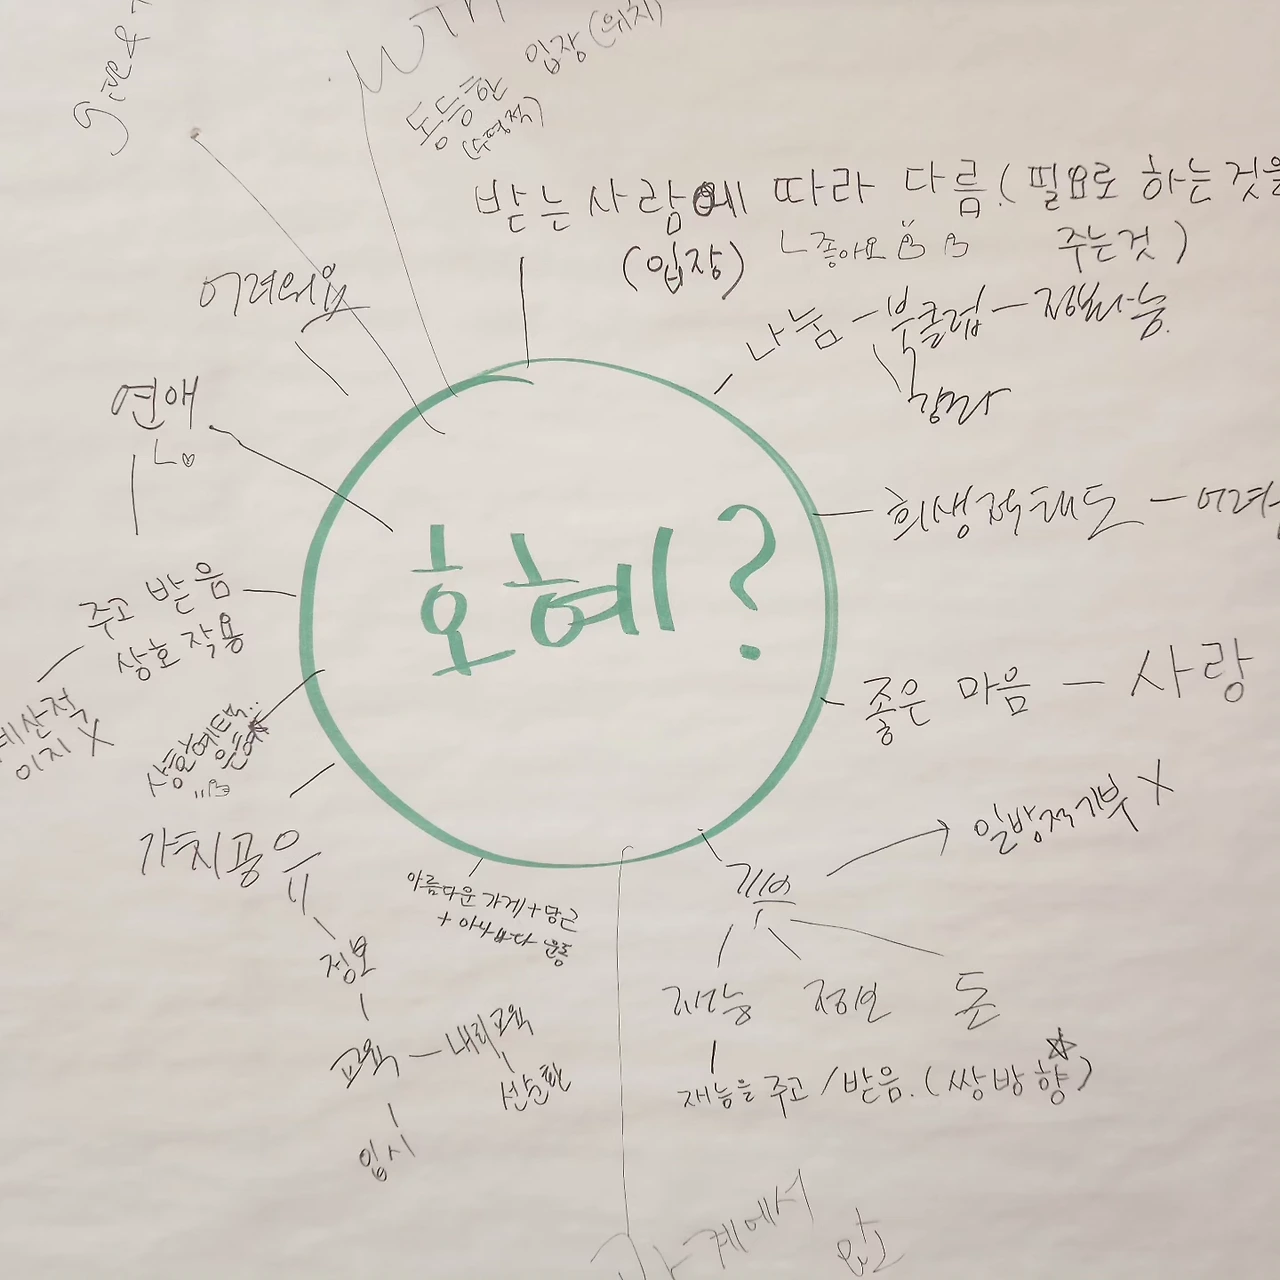 give &
입장 (위치)
동등한
(수평적)
받는 사람에 따라 다름. (필요로 하는 것을
(입장)
ㄴ좋아요
주는것)
어려워요
나눔 – 북클럽 – 재능
연애
ㄴ♡
호혜?
희생적 태도 – 어려
주고 받음
상호 작용
계산적
이지 X
좋은 마음 – 사랑
상함예택..
은혜
가치공유
일방적기부 X
기부
아름다운 가게 + 당근
+ 아나바다 운동
정보
재능 정보 돈
교육 – 내리교육
선순환
재능을 주고 / 받음. (쌍방향)
입시
관계에서